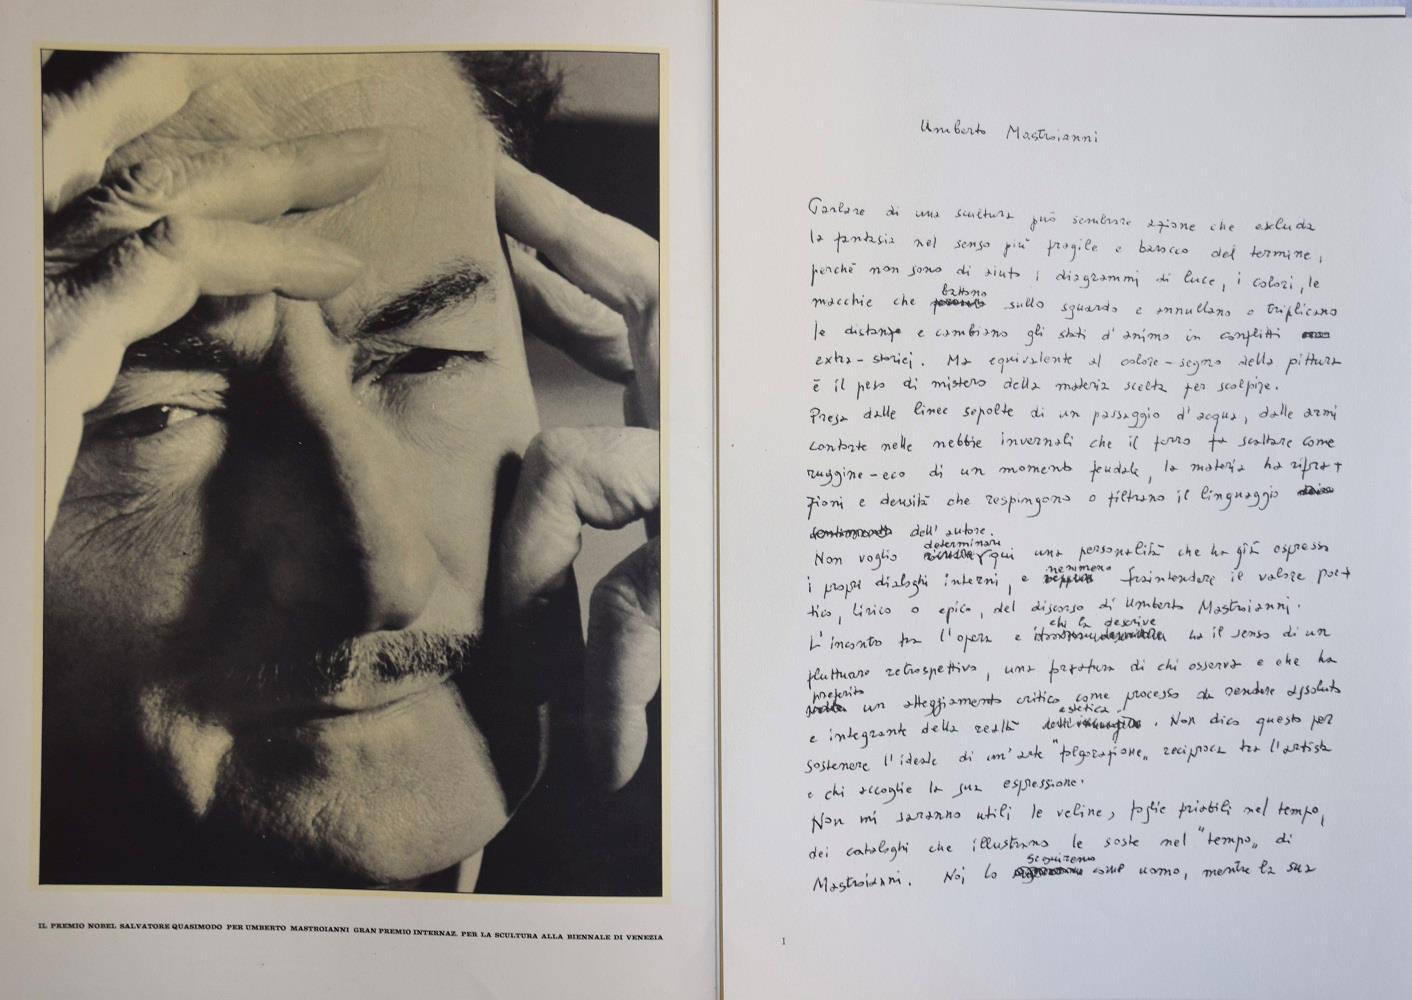 IL PREMIO NOBEL SALVATORE QUASIMODO PER UMBERTO MASTROIANNI GRAN PREMIO INTERNAZ. PER LA SCULTURA ALLA BIENNALE DI VENEZIA
Umberto Mastroianni
Parlare di una scultura può sembrare azione che escluda
la fantasia nel senso più fragile e barocco del termine,
perché non sono di aiuto i diagrammi di luce, i colori, le
macchie che battono sullo sguardo e annullano o triplicano
le distanze e cambiano gli stati d'animo in conflitti
extra-storici. Ma equivalente al colore-segno della pittura
è il peso di mistero della materia scelta per scolpire.
Presa dalle linee sepolte di un passaggio d'acqua, dalle armi
contorte nelle nebbie invernali che il ferro fa scattare come
ruggine-eco di un momento feudale, la materia ha rifra-
zioni e densità che respingono o filtrano il linguaggio
dell'autore.
Non voglio determinare qui una personalità che ha già espresso
i propri dialoghi interni, e nemmeno fraintendere il valore poe-
tico, lirico o epico, del discorso di Umberto Mastroianni.
L'incontro tra l'opera e chi la descrive ha il senso di un
fluttuare retrospettivo, una frattura di chi osserva e che ha
preferito un atteggiamento critico come processo da rendere assoluto
e integrante della realtà estetica. Non dico questo per
sostenere l'ideale di un'arte "folgorazione" reciproca tra l'artista
e chi accoglie la sua espressione.
Non mi saranno utili le veline, foglie friabili nel tempo,
dei cataloghi che illustrano le soste nel "tempo" di
Mastroianni. Noi lo seguiremo come uomo, mentre la sua
1